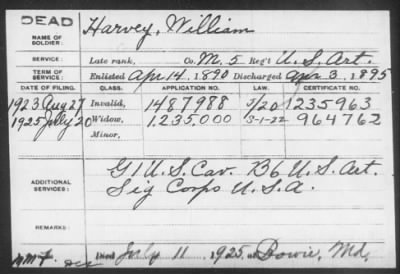 DEAD
NAME OF SOLDIER: Harvey, William
SERVICE: Late rank, Co. M. 5 Reg't U.S. Art.
TERM OF SERVICE: Enlisted Apr 14. 1890 Discharged Apr. 3. 1895
DATE OF FILING. CLASS. APPLICATION NO. LAW. CERTIFICATE NO.
1923 Aug 27 Invalid, 1487988 1235963
1925 July 20 Widow, 1.235.000 3-1-22 964762
Minor,
ADDITIONAL SERVICES: G1 U.S. Cav. B6 U.S. Art.
Sig Corps U.S.A.
REMARKS:
Died July 11 1925, at Bowie, Md.